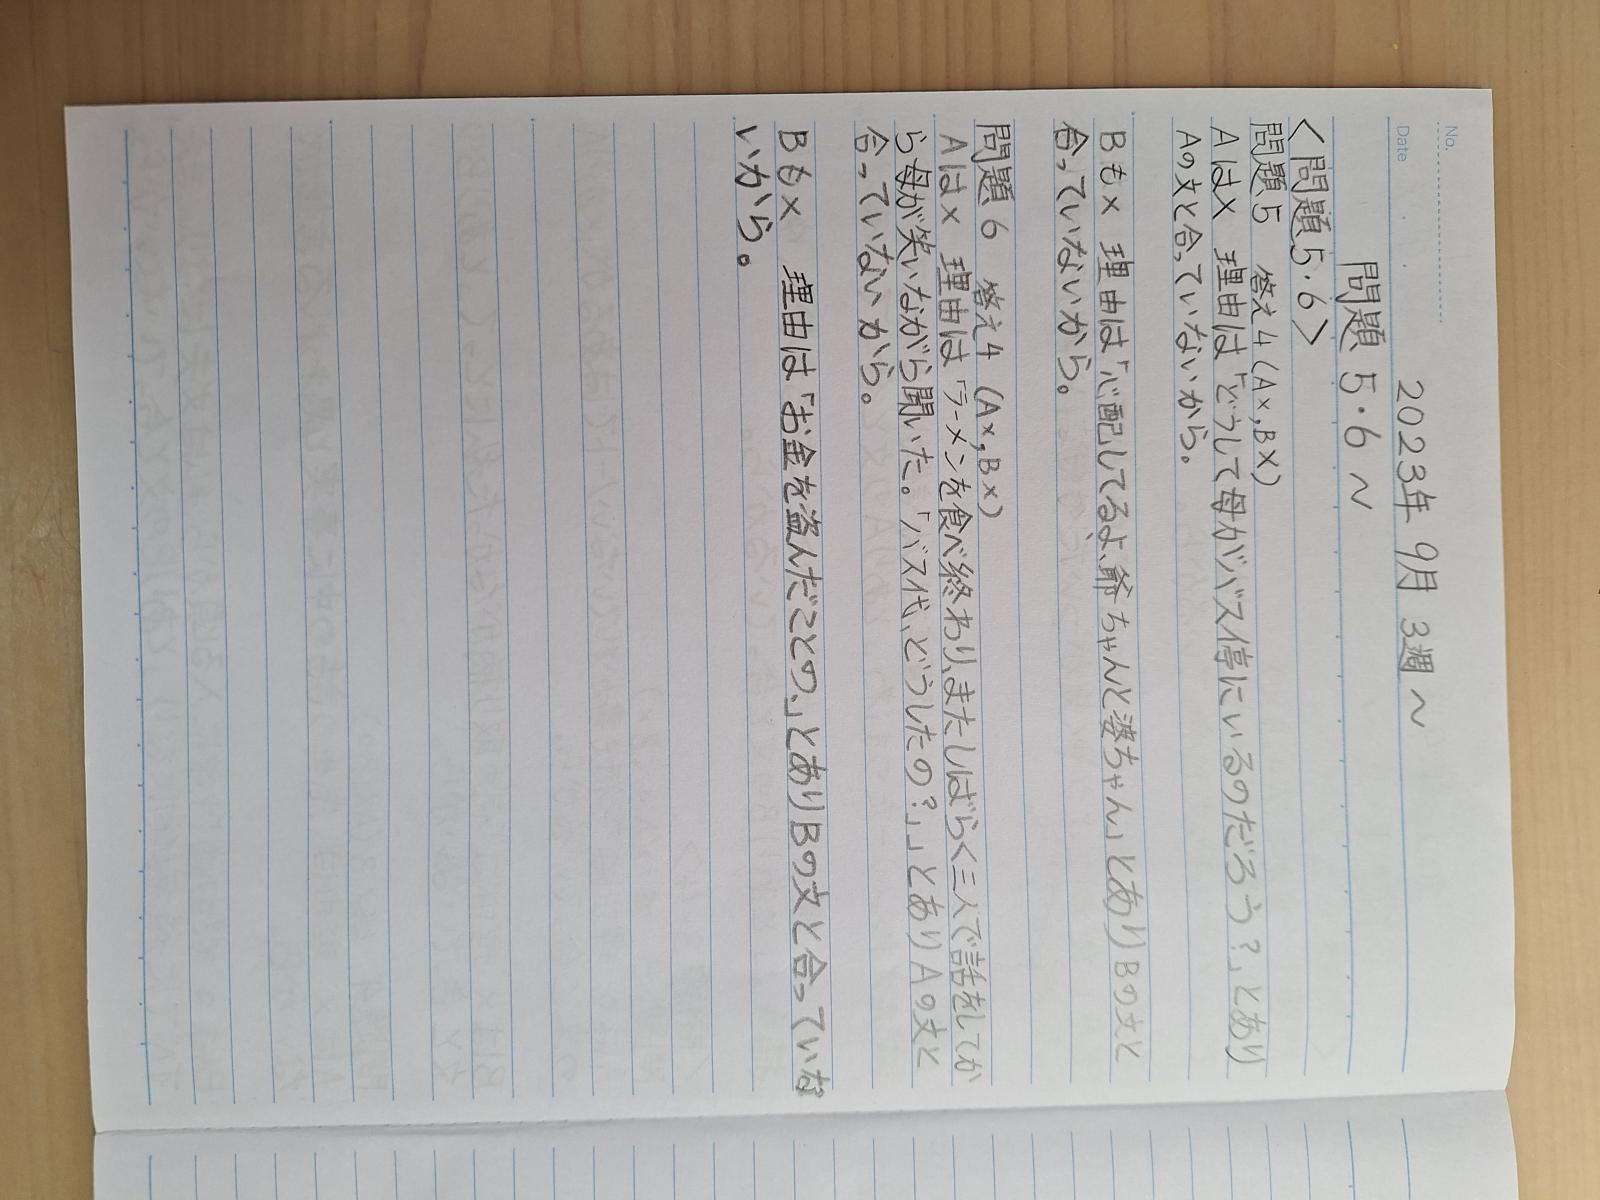 No.
Date
2023年 9月 3週 ~
問題 5・6 ~
<問題5・6>
問題5 答え4(A×,B×)
Aは× 理由は「どうして母がバス停にいるのだろう?」とあり
Aの文と合っていないから。
Bも× 理由は「心配してるよ、爺ちゃんと婆ちゃん」とありBの文と
合っていないから。
問題6 答え4 (A×,B×)
Aは× 理由は「ラーメンを食べ終わり、またしばらく三人で話をしてか
ら母が笑いながら聞いた。「バス代、どうしたの?」」とありAの文と
合っていないから。
Bも× 理由は「お金を盗んだことの、」とありBの文と合っていな
いから。